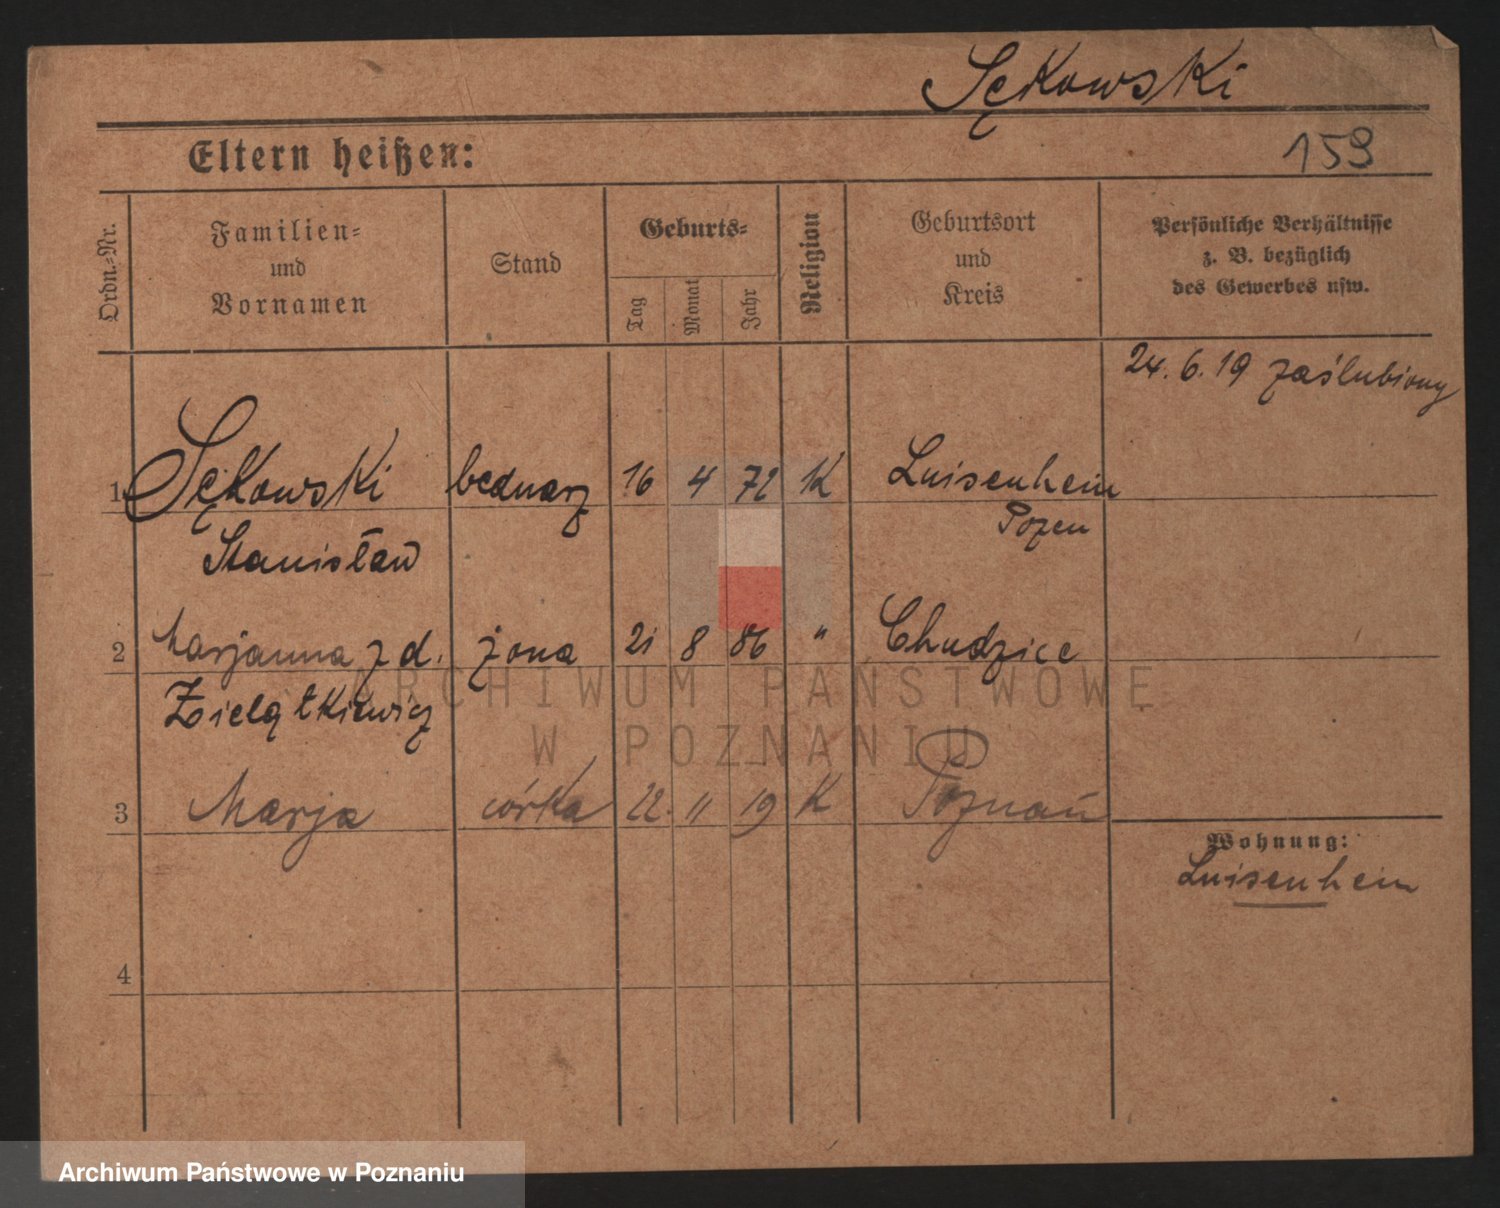 Sękowski
Eltern heißen:
159
Ordn.-Nr.
Familien-
und
Vornamen
Stand
Geburts-
Tag
Monat
Jahr
Religion
Geburtsort
und
Kreis
Persönliche Verhältnisse
z. B. bezüglich
des Gewerbes usw.
24. 6. 19 zaślubiony
1 Sękowski bednarz 16 4 72 K Luisenhein
Stanisław Pozen
2 Marjanna z d. żona 21 8 86 " Chudzice
Zielątkiewicz
3 Marja córka 22. 11 19 K Poznań
Wohnung:
Luisenhein
4
ARCHIWUM PAŃSTWOWE
W POZNANIU
Archiwum Państwowe w Poznaniu